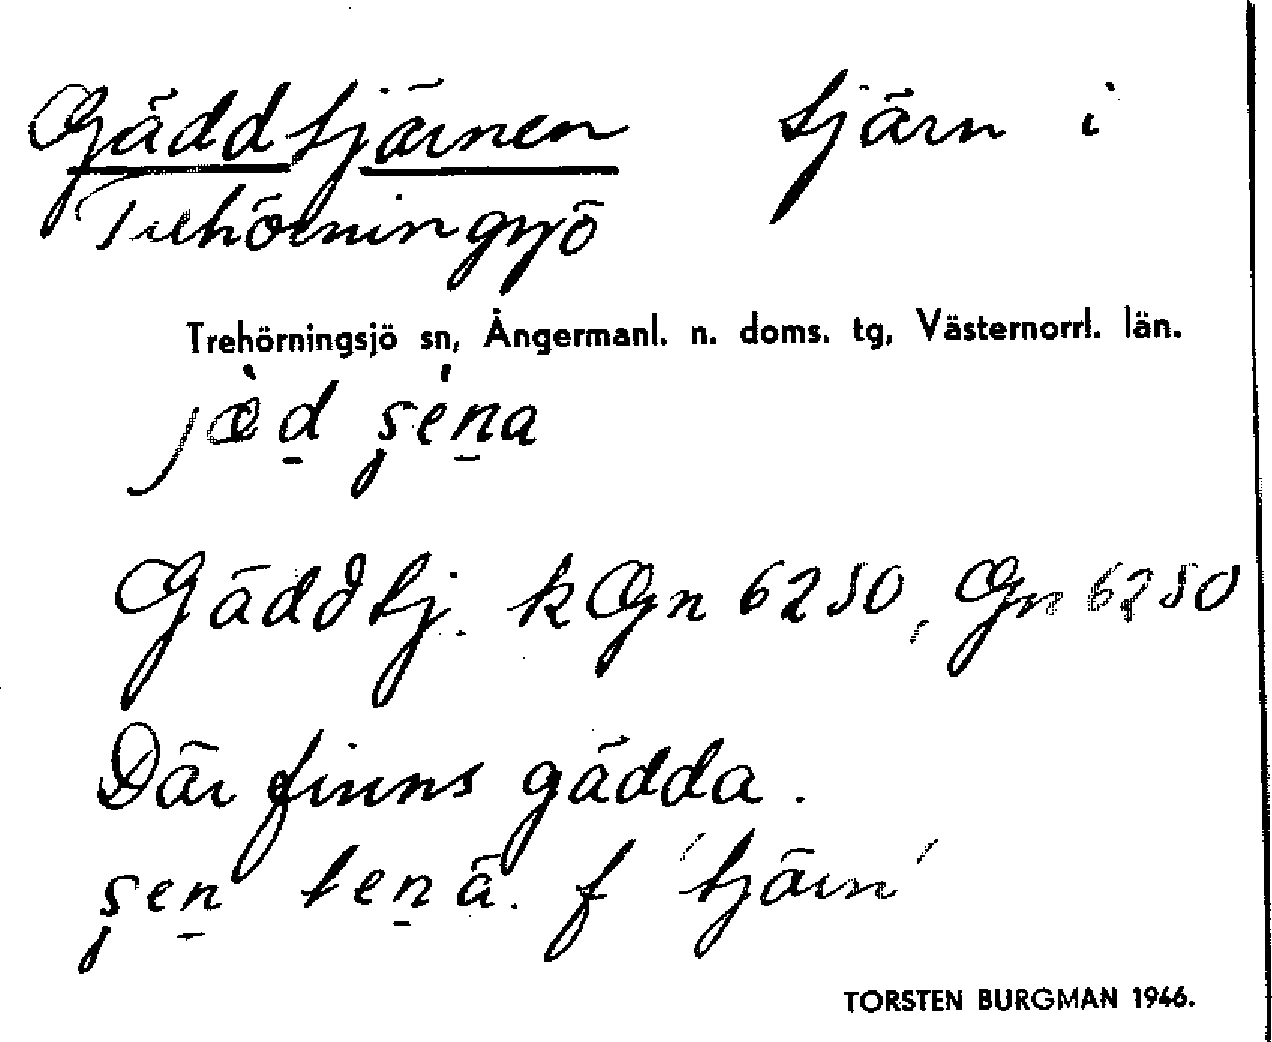 Gäddtjärnen tjärn i
Trehörningsjö
Trehörningsjö sn, Ångermanl. n. doms. tg, Västernorrl. län.
Gäddtj. kGn 6250, Gn 6250
Där finns gädda.
f 'tjärn'
TORSTEN BURGMAN 1946.